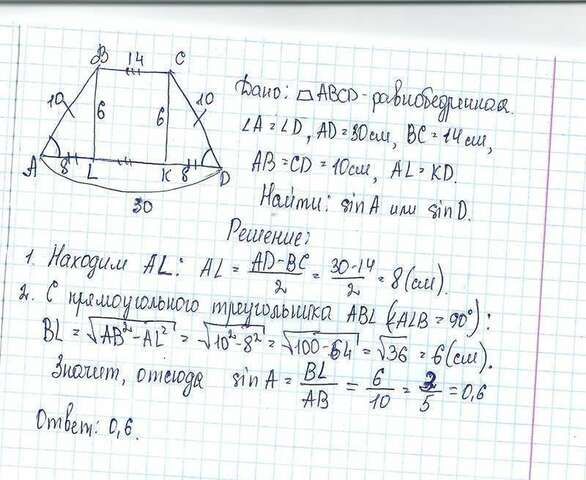 B 14 C
10 6 6 10
A 8 L K 8 D
30
Дано: ABCD - равнобедренная.
∠A = ∠D, AD = 30 см, BC = 14 см,
AB = CD = 10 см, AL = KD.
Найти: sin A или sin D.
Решение:
1. Находим AL: AL = (AD - BC)/2 = (30 - 14)/2 = 8 (см).
2. С прямоугольного треугольника ABL (∠ALB = 90°):
BL = √(AB² - AL²) = √(10² - 8²) = √(100 - 64) = √36 = 6 (см).
Значит, отсюда sin A = BL/AB = 6/10 = 3/5 = 0,6
Ответ: 0,6.